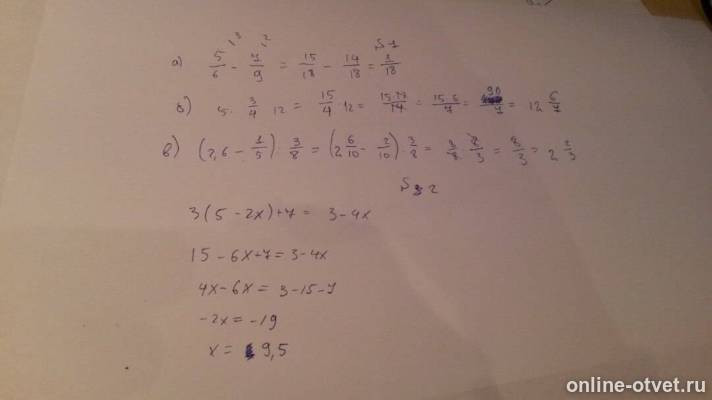 №1
а) 5/6 - 7/9 = 15/18 - 14/18 = 1/18
б) 5 · 3/4 · 12 = 15/4 · 12 = = 15·6/7 = 90/7 = 12 6/7
в) (2,6 - 1/5) · 3/8 = (2 6/10 - 2/10) · 3/8 = = 8/3 = 2 2/3
№ 2
3(5-2x)+7= 3-4x
15-6x+7=3-4x
4x-6x= 3-15-7
-2x=-19
x= 9,5
online-otvet.ru